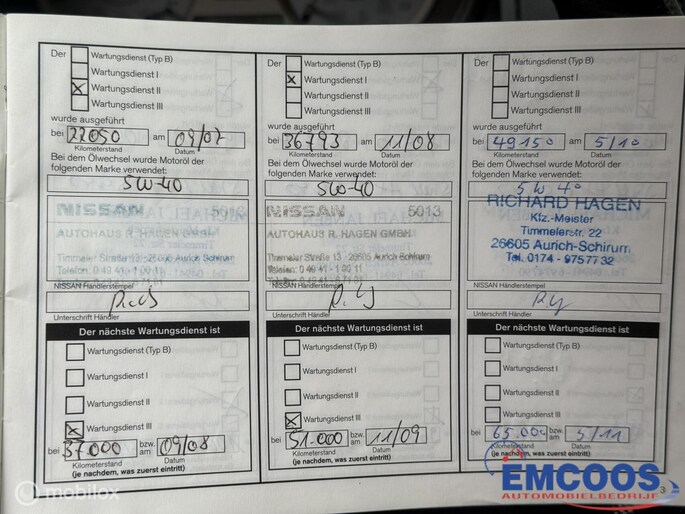 Der Wartungsdienst (Typ B)
Wartungsdienst I
Wartungsdienst II
Wartungsdienst III
wurde ausgeführt
bei 22050 am 09/07
Kilometerstand Datum
Bei dem Ölwechsel wurde Motoröl der
folgenden Marke verwendet:
5W-40
NISSAN
AUTOHAUS R. HAGEN GMBH
NISSAN Händlerstempel
Unterschrift Händler
Der nächste Wartungsdienst ist
Wartungsdienst (Typ B)
Wartungsdienst I
Wartungsdienst II
Wartungsdienst III
bei 37.000 bzw. am 09/08
Kilometerstand Datum
(je nachdem, was zuerst eintritt)
Der Wartungsdienst (Typ B)
Wartungsdienst I
Wartungsdienst II
Wartungsdienst III
wurde ausgeführt
bei 36793 am 11/08
Kilometerstand Datum
Bei dem Ölwechsel wurde Motoröl der
folgenden Marke verwendet:
5W-40
NISSAN 5013
AUTOHAUS R. HAGEN GMBH
NISSAN Händlerstempel
Unterschrift Händler
Der nächste Wartungsdienst ist
Wartungsdienst (Typ B)
Wartungsdienst I
Wartungsdienst II
Wartungsdienst III
bei 51.000 bzw. am 11/09
Kilometerstand Datum
(je nachdem, was zuerst eintritt)
Der Wartungsdienst (Typ B)
Wartungsdienst I
Wartungsdienst II
Wartungsdienst III
wurde ausgeführt
bei 49150 am 5/10
Kilometerstand Datum
Bei dem Ölwechsel wurde Motoröl der
folgenden Marke verwendet:
5W 40
RICHARD HAGEN
Kfz.-Meister
Timmelerstr. 22
26605 Aurich-Schirum
Tel. 0174 - 9757732
NISSAN Händlerstempel
Unterschrift Händler
Der nächste Wartungsdienst ist
Wartungsdienst (Typ B)
Wartungsdienst I
Wartungsdienst II
Wartungsdienst III
bei 65.000 bzw. am 5/11
Kilometerstand Datum
(je nachdem, was zuerst eintritt)
3
EMCOOS
AUTOMOBIELBEDRIJF
mobilox